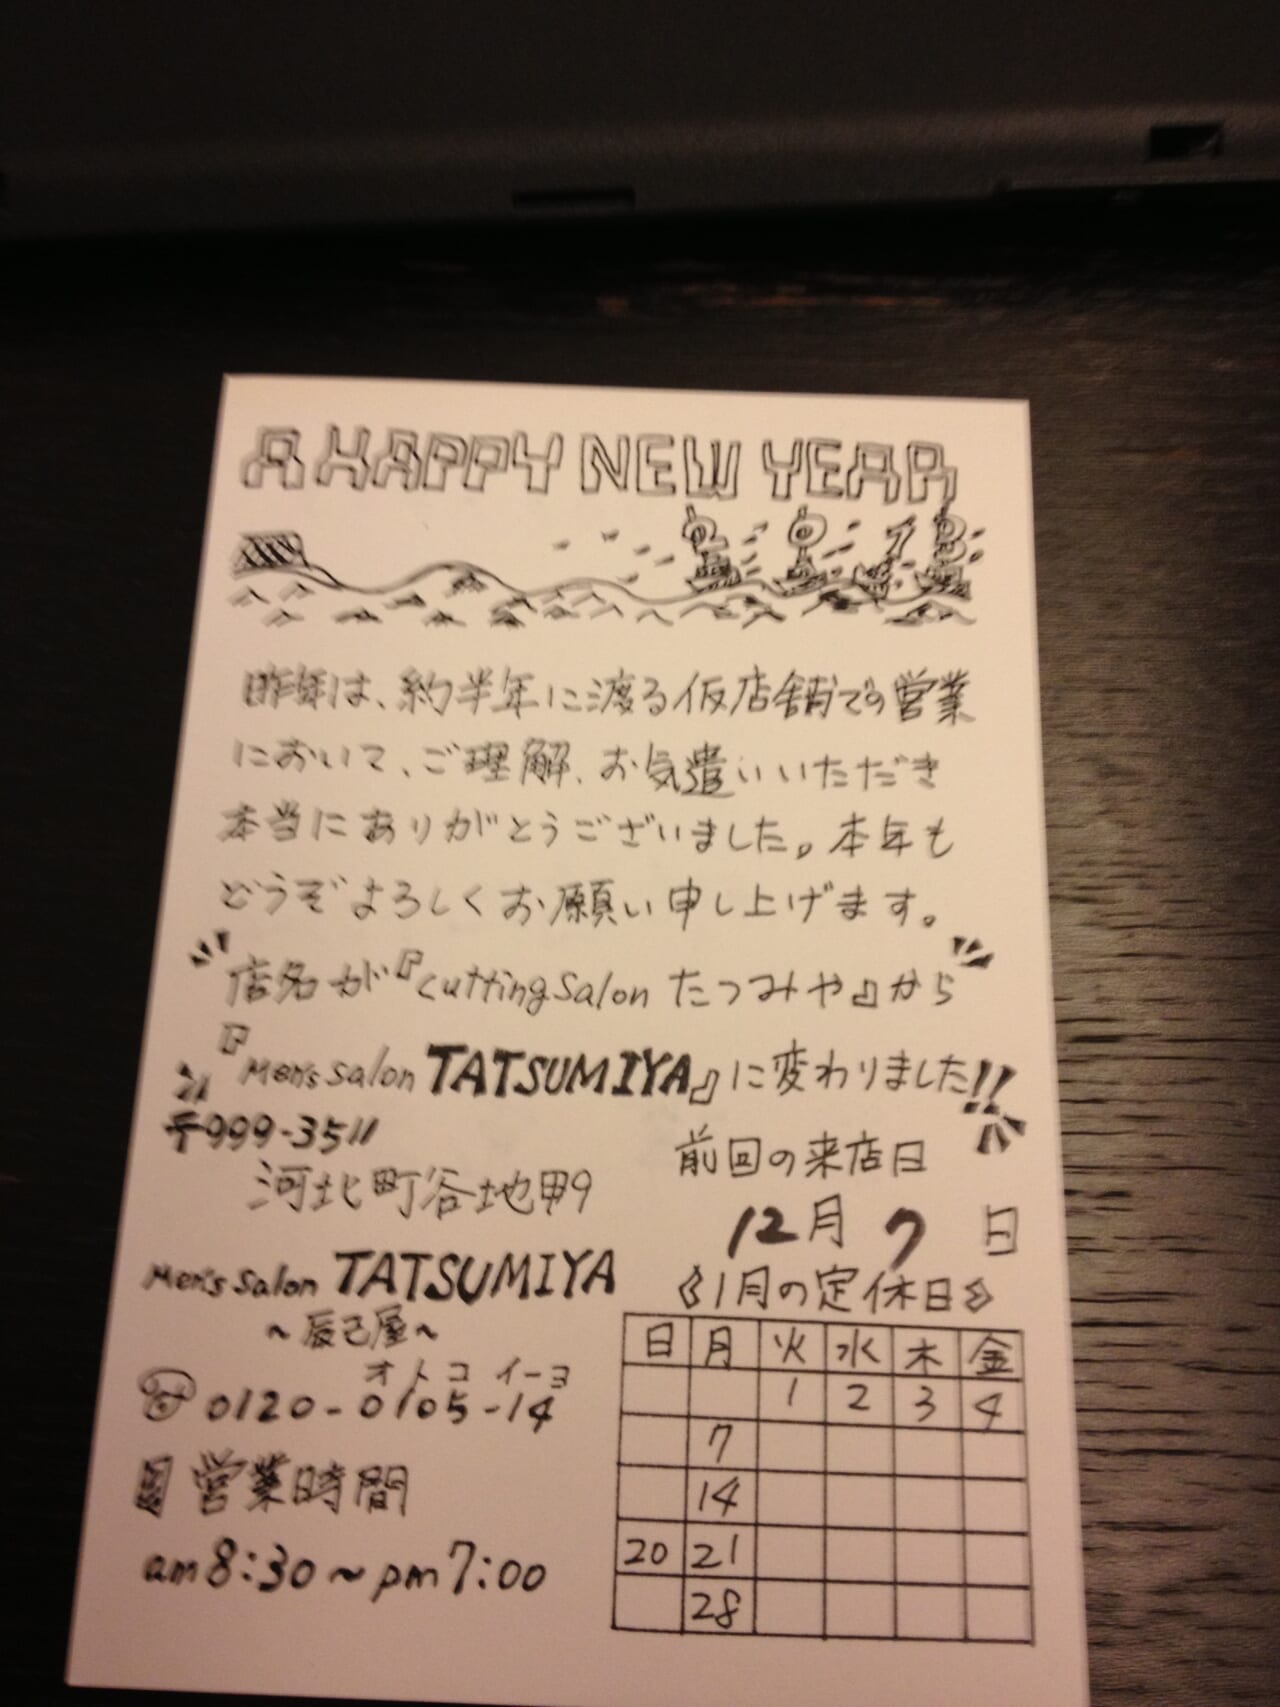 A HAPPY NEW YEAR
2013
昨年は、約半年に渡る仮店舗での営業
において、ご理解、お気遣いいただき
本当にありがとうございました。本年も
どうぞよろしくお願い申し上げます。
店名が『cutting Salon たつみや』から
『Men's salon TATSUMIYA』に変わりました!!
〒999-3511
河北町谷地甲9
Men's Salon TATSUMIYA
～辰己屋～
オトコ イーヨ
0120-0105-14
営業時間
am8:30～pm7:00
前回の来店日
12月 7 日
《1月の定休日》
日 月 火 水 木 金
1 2 3 4
7
14
20 21
28